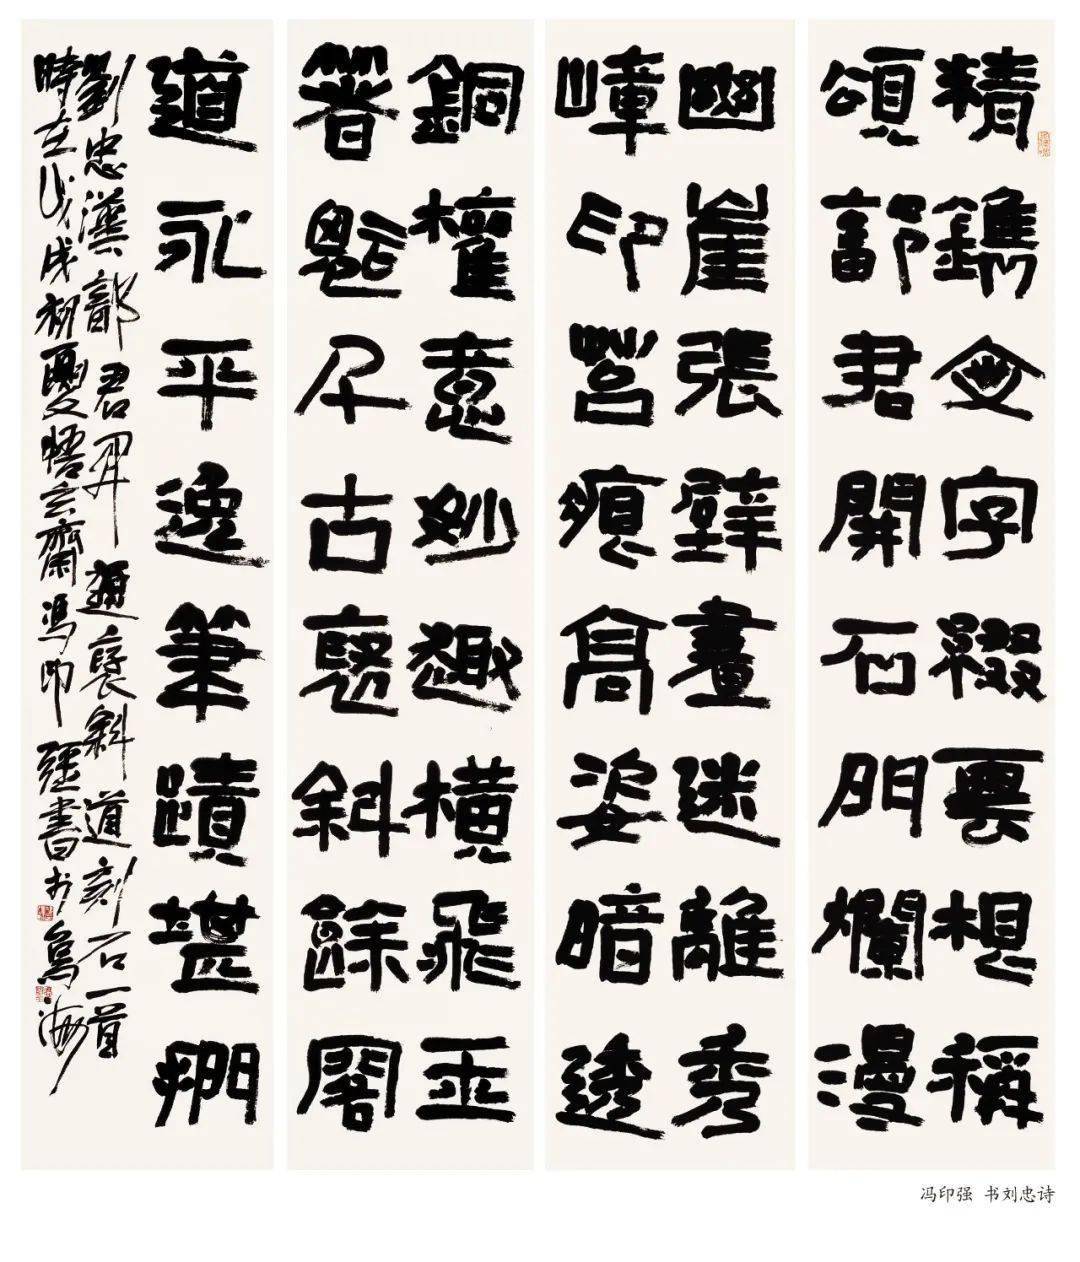 精鐫文字綴雲想稱
頌鄐君開石門爛漫
幽崖張壁畫迷離秀
嶂印苔痕高姿暗透
銅權意妙趣橫飛玉
箸魂千古褒斜餘閣
道永平逸筆蹟堪捫
劉忠漢鄐君開通褒斜道刻石一首
時在戊戌初夏悟玄齋馮印强書於烏海
冯印强 书刘忠诗